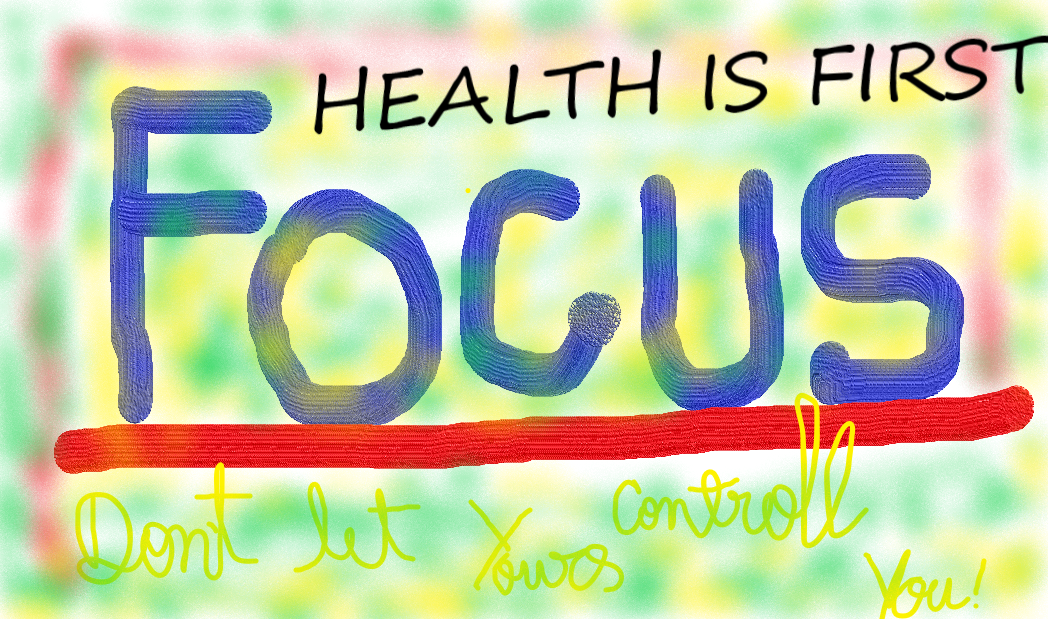 HEALTH IS FIRST
FOCUS
Don't let Yours controll
You!